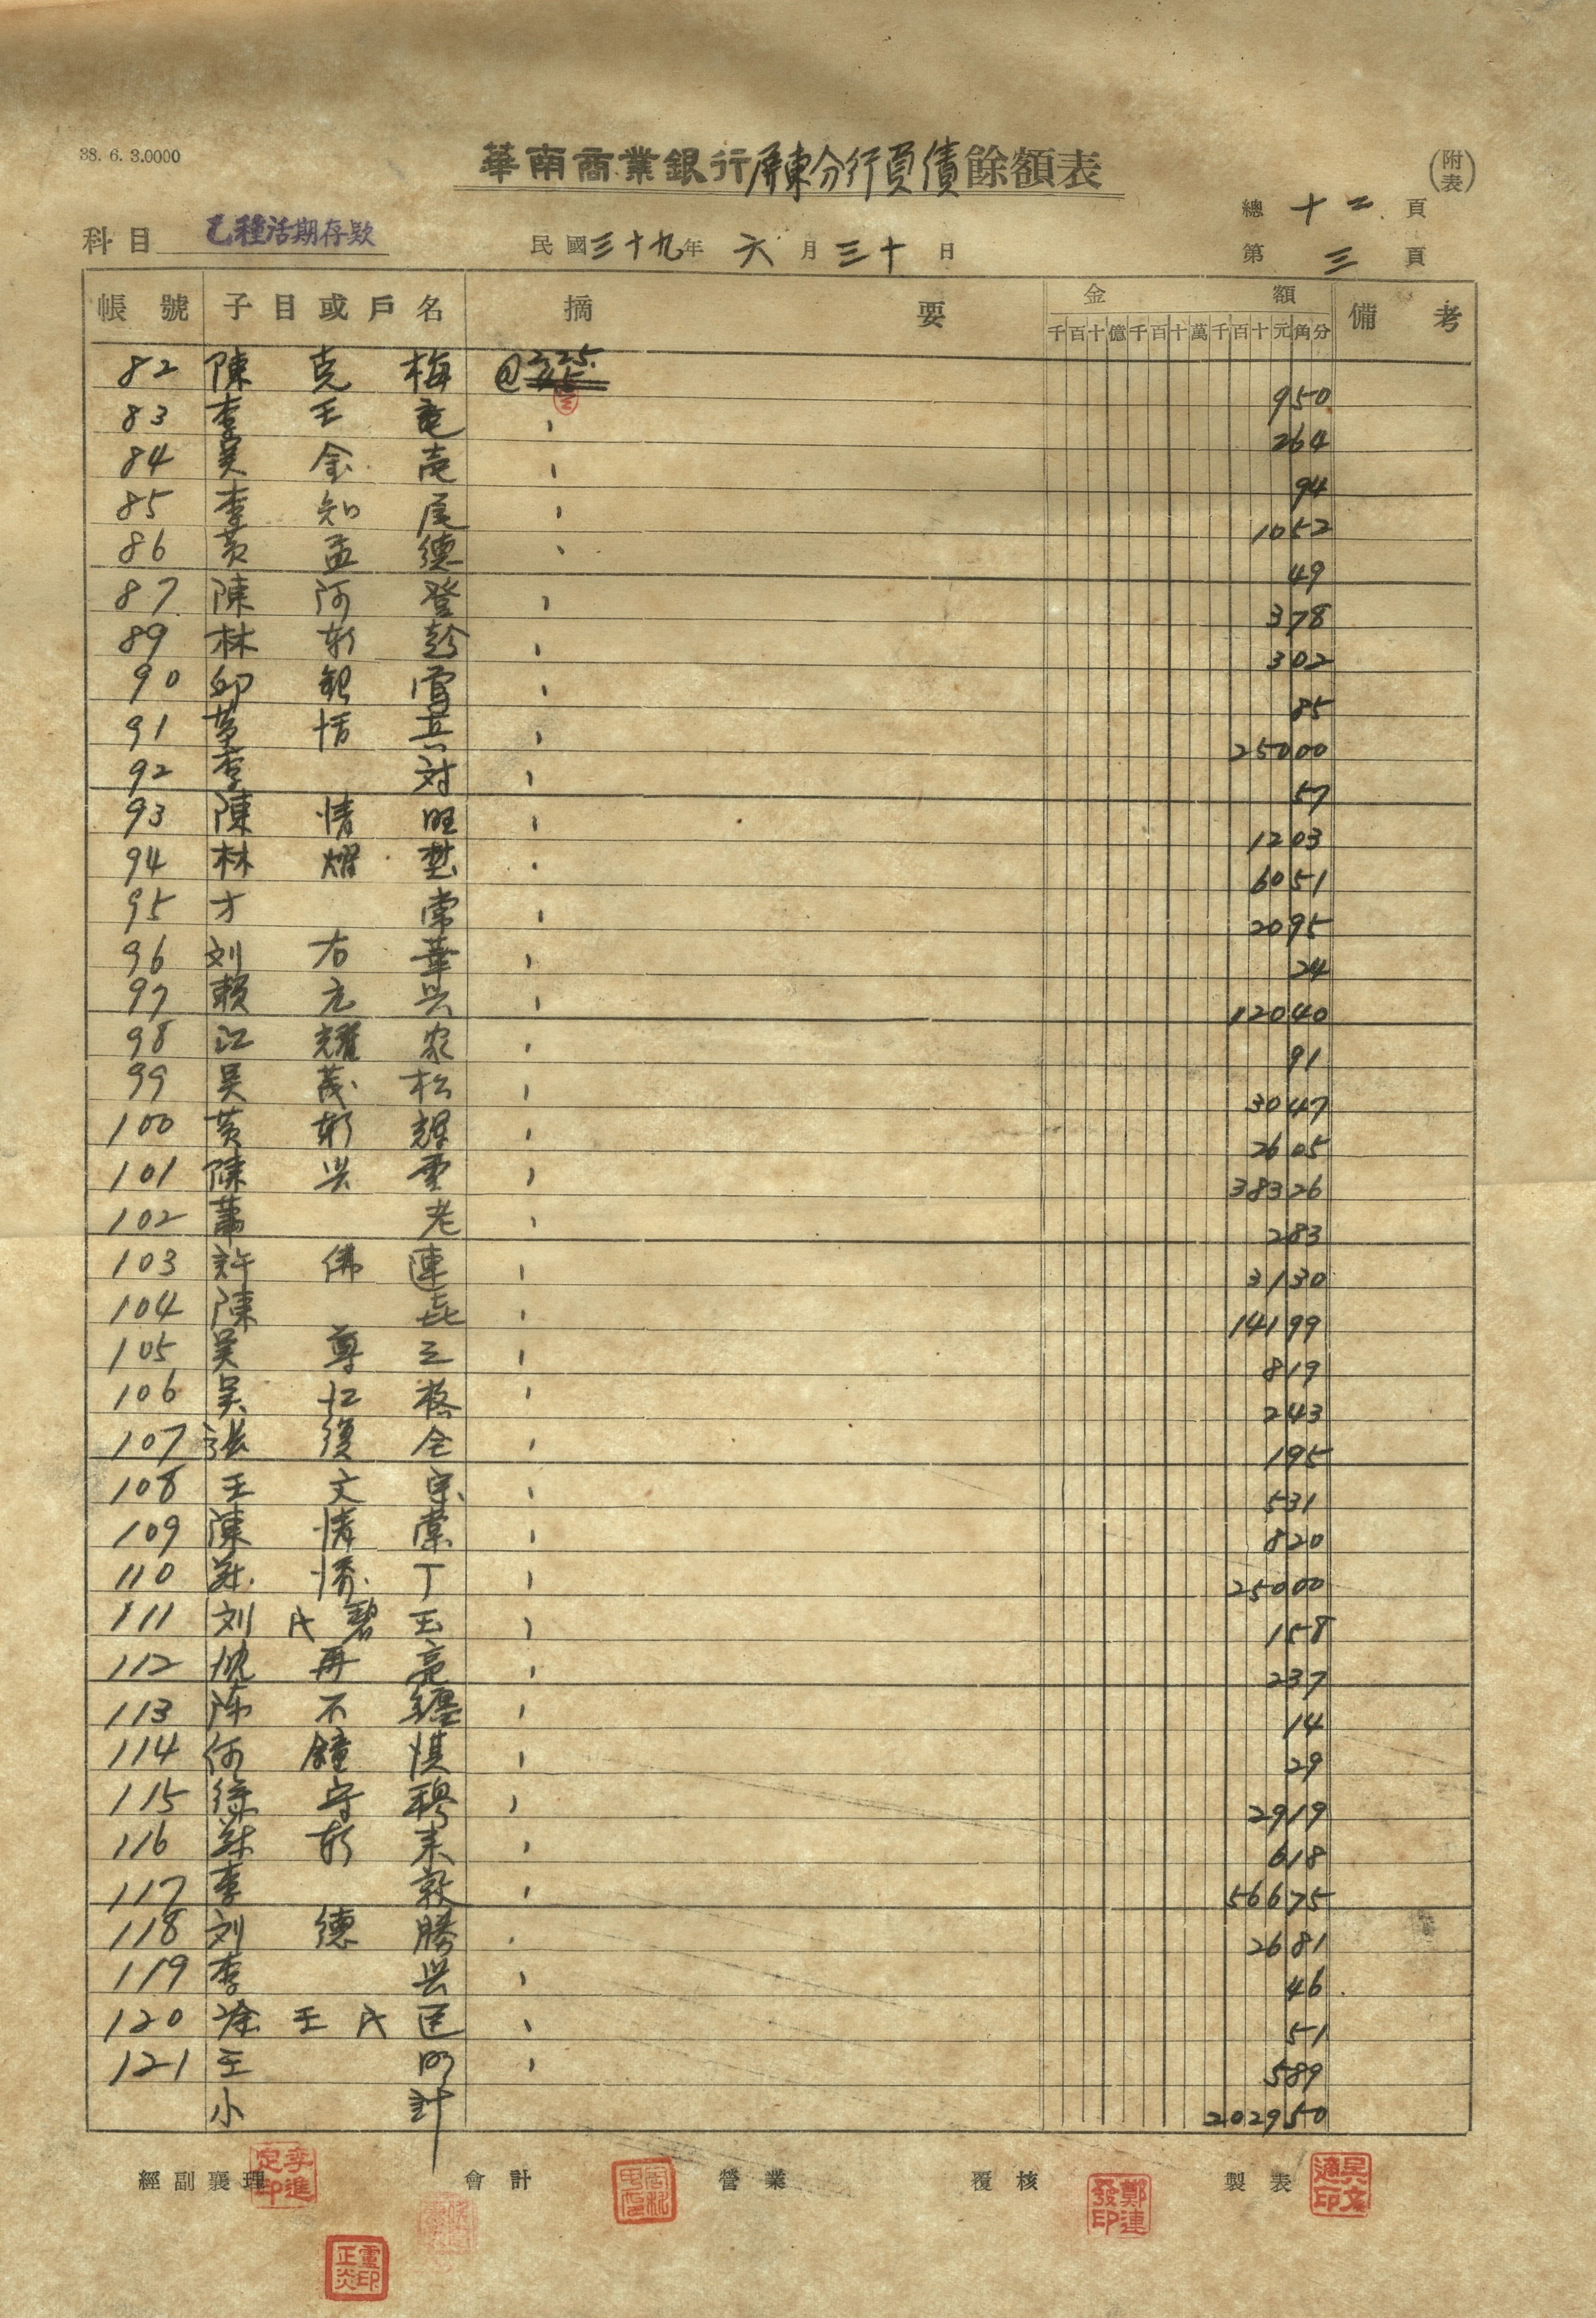 38. 6. 3.0000
華南商業銀行屏東分行負債餘額表
(附表)
總 十二 頁
科目 乙種活期存款 民國三十九年 六 月 三十 日
第 三 頁
帳號 子目或戶名 摘要 金額 備考
千百十億千百十萬千百十元角分
82 陳克梅 @225. 950
83 李王 264
84 吳金 94
85 李知尾 1052
86 黃孟德 49
87 陳阿登 378
89 林新彭 302
90 邱 85
91 25000
92 李対 57
93 陳情旺 1203
94 林燿 6051
95 才常 2095
96 刘右華 24
97 賴元兴 12040
98 江耀 91
99 吳茂松 3047
100 黃新 2605
101 陳兴 38326
102 蕭老 283
103 許佛連 3130
104 陳㐂 14199
105 吳尊三 819
106 吳 243
107 復全 195
108 王文宗 531
109 陳清棠 820
110 丁 25000
111 刘氏碧玉 158
112 再亮 237
113 陈不纏 14
114 何鐘 29
115 徐守穆 2919
116 新来 618
117 李敦 56675
118 刘德勝 2681
119 李兴 46
120 涂王氏 51
121 王 589
小計 202950
經副襄理 會計 營業 覆核 製表
李進定印
鄭連發印
吳文通印